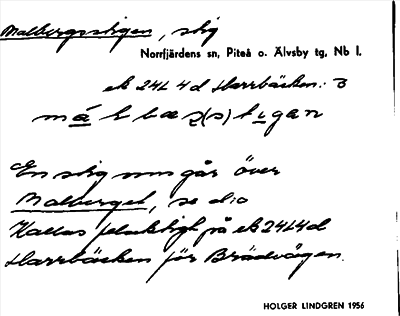 Malbergsstigen, stig
Norrfjärdens sn, Piteå o. Älvsby tg, Nb l.
ek 24L4d Harrbäcken: 3
En stig som går över
Malberget, se d:o
Kallas felaktigt på ek 24L4d
Harrbäcken för Brädvägen.
HOLGER LINDGREN 1956